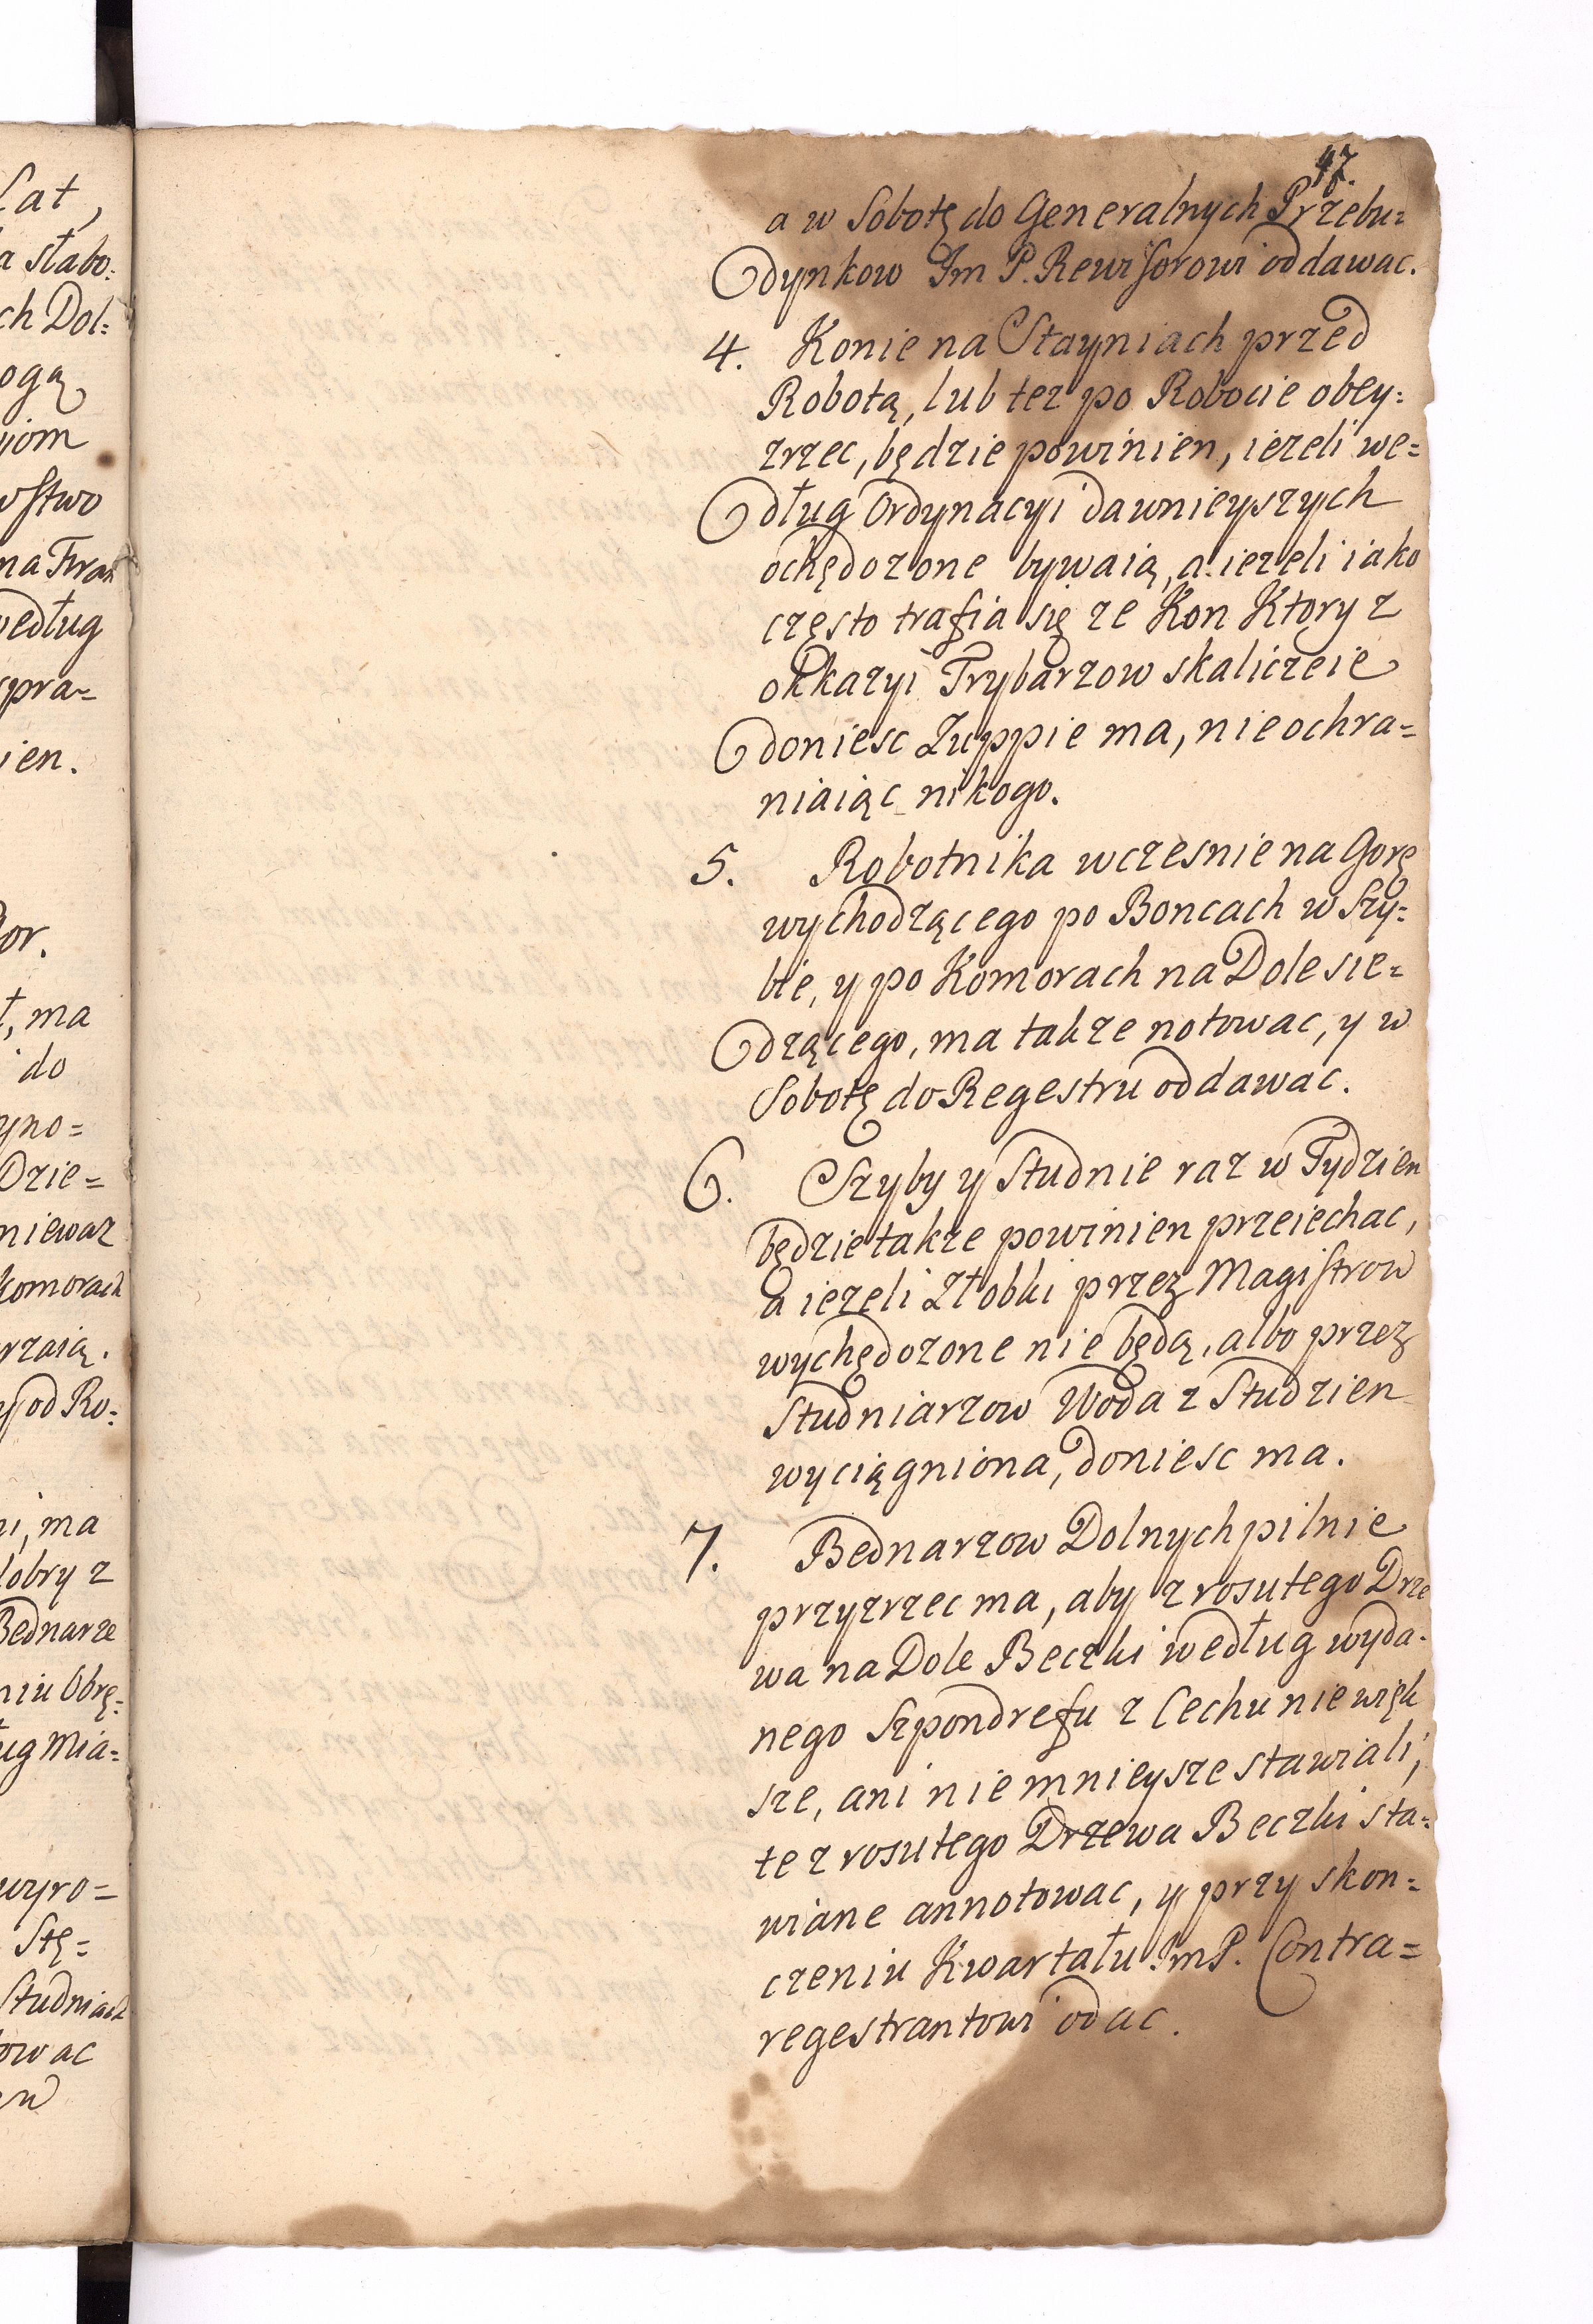 Lat,
a słabo:
ch Dol:
ogą
ijom
wstwo
na Fran
edług
spra-
ien.
or.
t, ma
do
yno=
Dzie=
niewaz
komorach
rzaią.
y od Ro:
ni, ma
dobry z
Bednarze
niu Obrę:
ug Mia=
wyro=
Stę=
Studniach
owac
47.
a w Sobotę do Generalnych Przebu=
dynkow Im P. Rewisorowi oddawac.
4. Konie na Stayniach przed
Robotą, lub tez po Robocie obey:
zrzec, będzie powinien, iezeli we=
dług Ordynacyi dawnieyszych
ochędozone bywaią, a iezeli iako
często trafia się ze Kon Ktory z
okkazyi Trybarzow skaliczeie
doniesc Zuppie ma, nie ochra=
niaiąc nikogo.
5. Robotnika wczesnie na Gorę
wychodzącego po Boncach w Szy=
bie, y po Komorach na Dole sie=
dzącego, ma takze notowac, y w
Sobotę do Regestru oddawac.
6. Szyby y Studnie raz w Tydzien
będzie takze powinien przeiechac,
a iezeli Złobki przez Magistrow
wychędozone nie będą, albo przez
Studniarzow Woda z Studzien
wyciągniona, doniesc ma.
7. Bednarzow Dolnych pilnie
przyzrzec ma, aby z rosutego Drze
wa na Dole Beczki według wyda-
nego Szpondrefu z Cechu nie więk
sze, ani nie mnieysze stawiali,
te z rosutego Drzewa Beczki sta=
wiane annotowac, y przy skon=
czeniu Kwartału Im P. Contra=
regestrantowi odac.